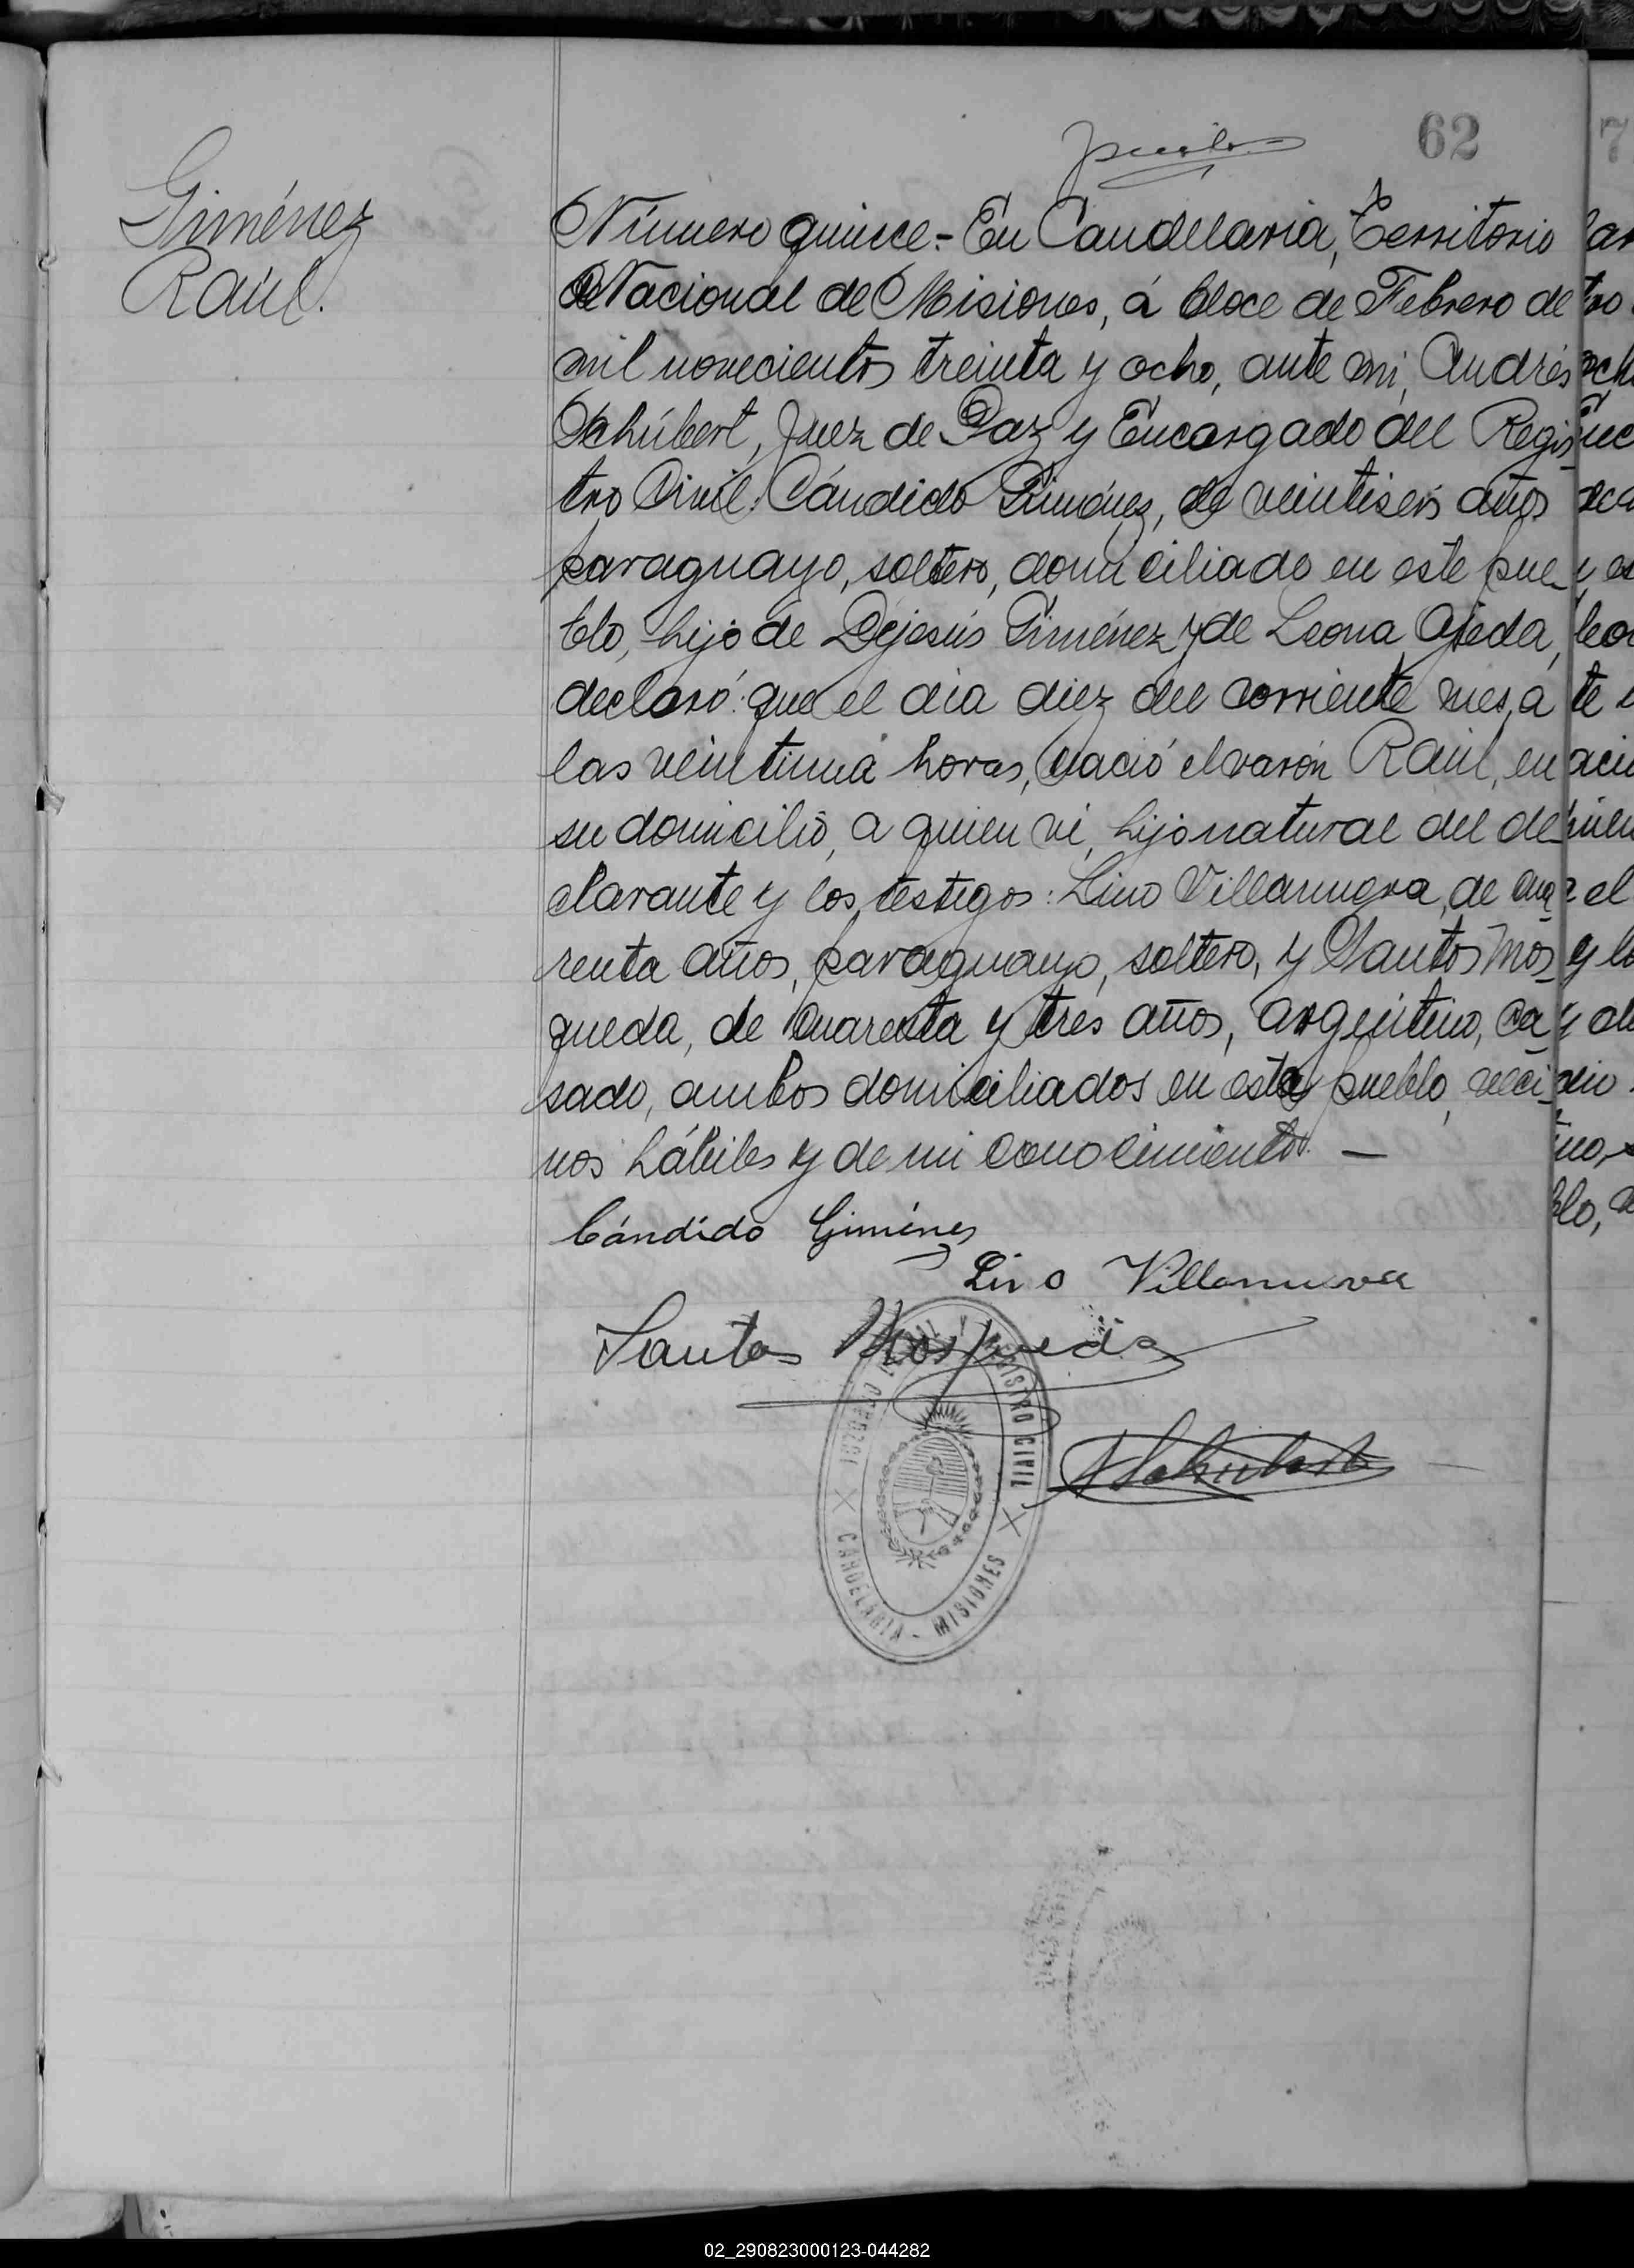 62
Giménez
Raúl.
Número quince.- En Candelaria, Territorio
Nacional de Misiones, á doce de Febrero de
mil novecientos treinta y ocho, ante mi, Andrés
Schúbert, Juez de Paz y Encargado del Regis-
tro Civil: Cándido Giménez, de veintiseis años
paraguayo, soltero, domiciliado en este pue-
blo, hijo de Dejesús Giménez y de Leona Ojeda,
declaró: que el dia diez del corriente mes, á
las veintiuna horas, nació el varón Raúl, en
su domicilio, a quien vi, hijo natural del de-
clarante y los testigos: Lino Villanueva, de cua-
renta años, paraguayo, soltero, y Santos Mos-
queda, de cuarenta y tres años, argentino, ca-
sado, ambos domiciliados en este pueblo, veci-
nos hábiles y de mi conocimiento. —
Cándido Giménes
Lino Villanueva
Santos Mosqueda
ASchubert
JUZGADO DE PAZ Y REGISTRO CIVIL
CANDELARIA - MISIONES
02_290823000123-044282